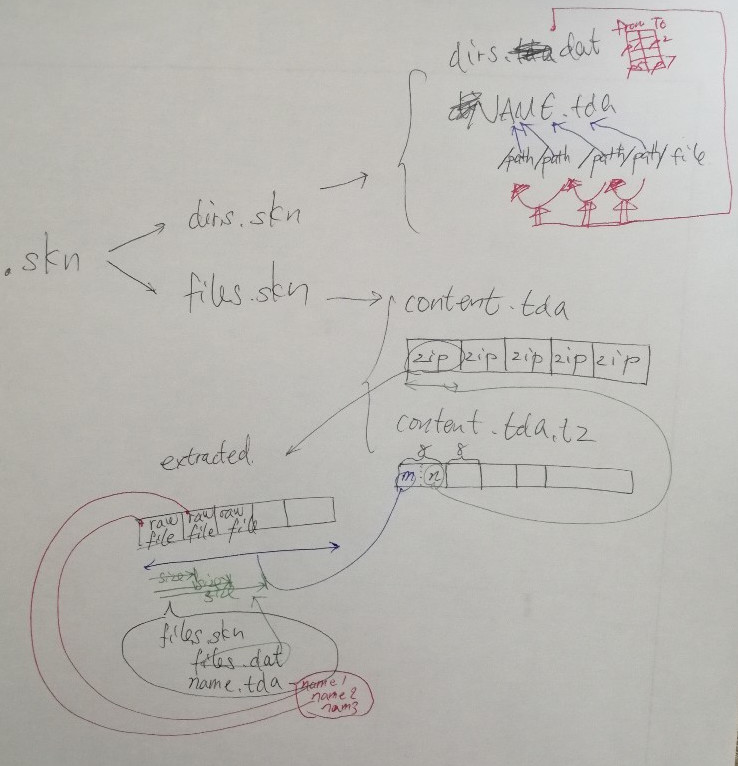 dirs. dat
From To
NAME.tda
/path/path /path/path/file
dirs.skn
.skn
files.skn
content.tda
zip zip zip zip zip
content.tda.tz
8 8
m n
extracted.
raw file raw file raw file
size
size
size
files.skn
files.dat
name.tda
name1
name2
nam3